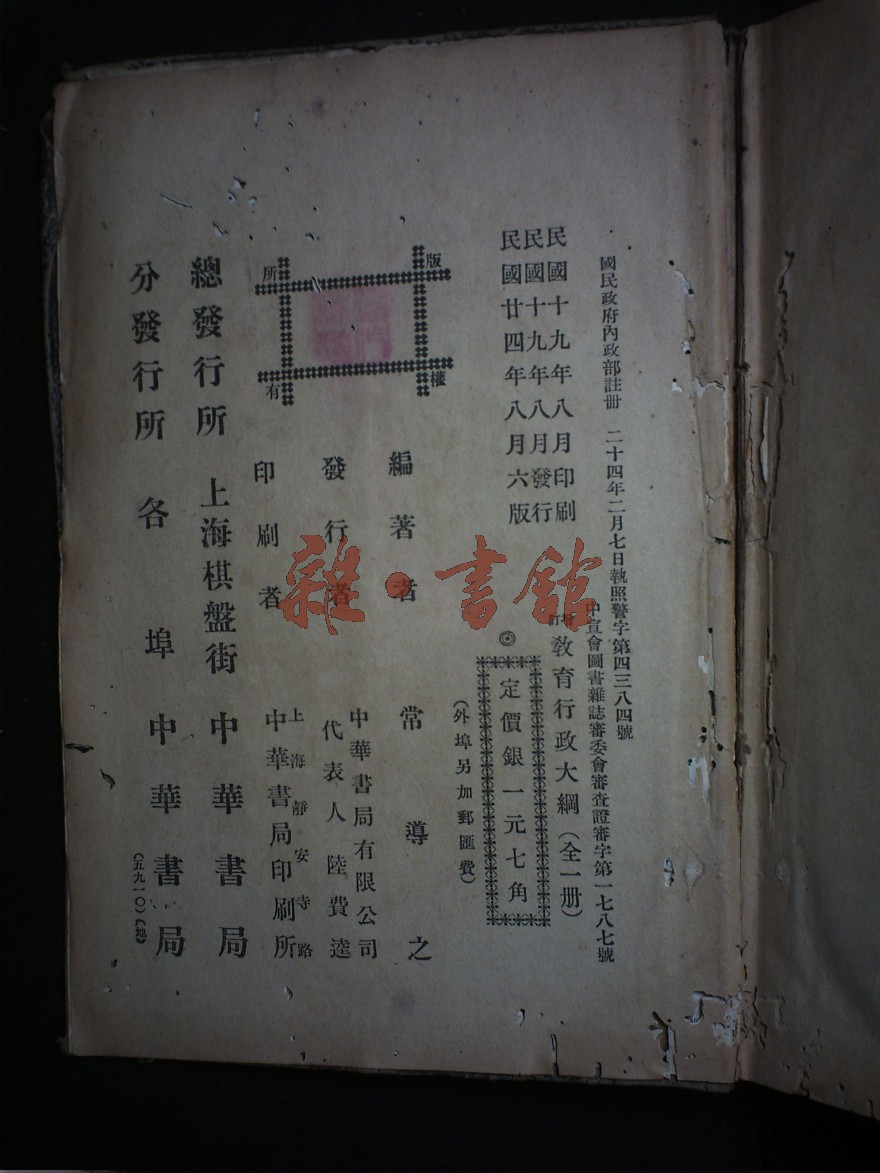 國民政府內政部註冊 二十四年二月七日執照警字第四三八四號
中宣會圖書雜誌審委會審查證審字第一七八七號
民國十九年八月印刷
民國十九年八月發行
民國廿四年八月六版
增訂教育行政大綱（全一冊）
◎定價銀一元七角
（外埠另加郵匯費）
版權所有
編著者 常導之
發行者 中華書局有限公司
代表人 陸費逵
印刷者 上海靜安寺路
中華書局印刷所
總發行所 上海棋盤街 中華書局
分發行所 各埠 中華書局
（五九一〇）（地）
雜·書館